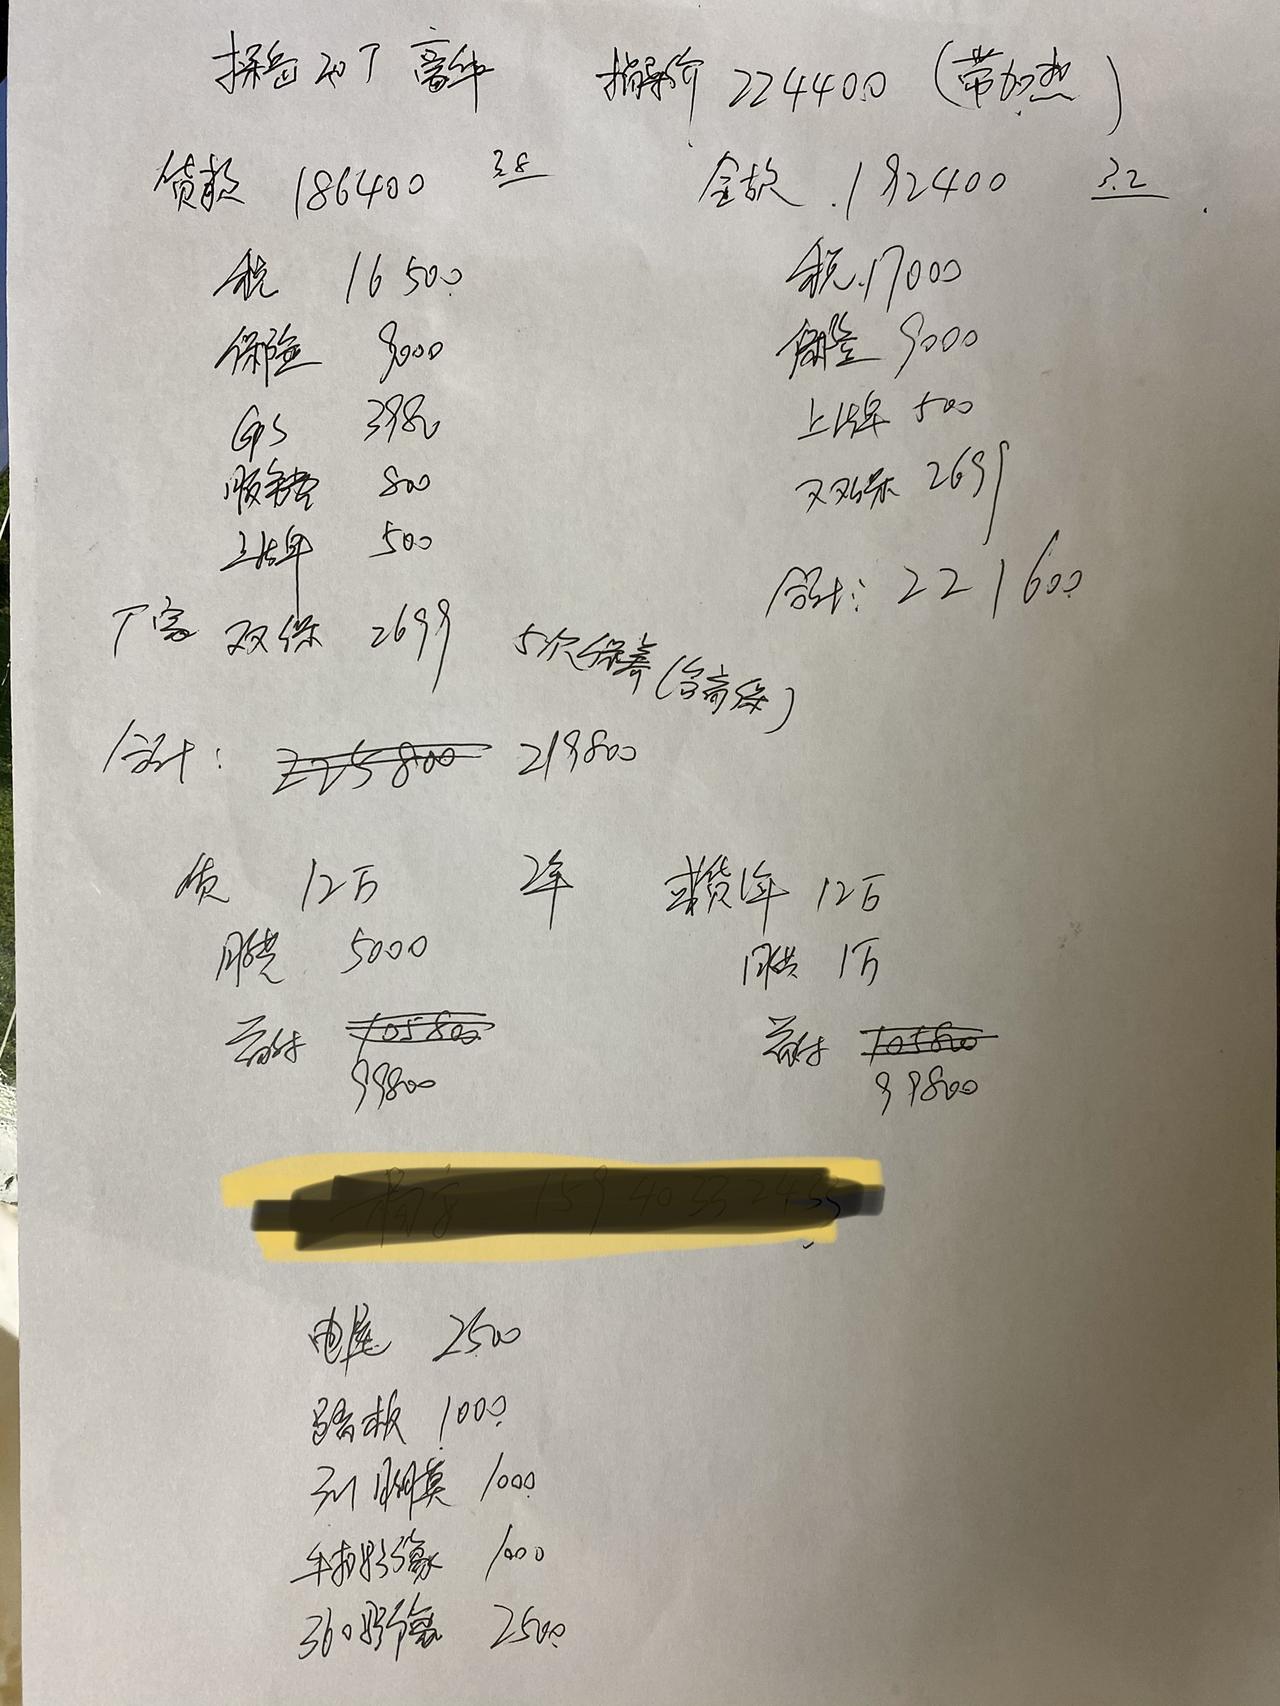 探岳 20T 高华 指导价 224400 (带加热)
贷款 186400 3.8 全款 192400 3.2
税 16500 税 17000
保险 9000 保险 9000
GPS 3980 上牌 500
服务费 800 双保 2699
上牌 500 合计: 221600
厂家 双保 2699 5次保养(含首保)
合计: 225800 219800
贷 12万 2年 或贷1年 12万
月供 5000 月供 1万
首付 105800 首付 105800
99800 99800
电尾 2500
踏板 1000
3M 脚膜 1000
1000
360影像 2500